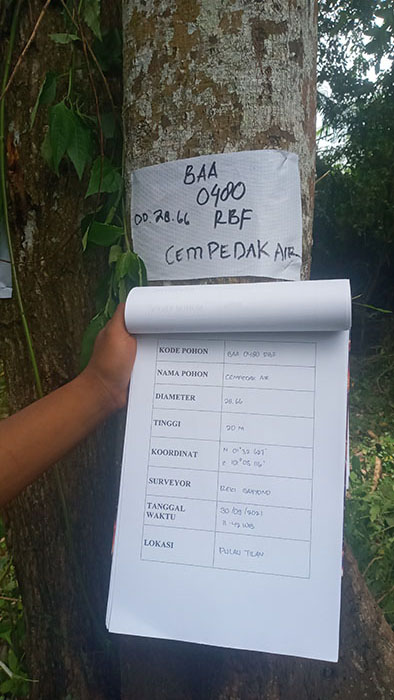 BAA
0480
DD.28.66 RBF
CEMPEDAK AIR
KODE POHON BAA 0480 RBF
NAMA POHON CEMPEDAK AIR
DIAMETER 28.66
TINGGI 20 M
KOORDINAT N 01°32'627"
E 101°05'116"
SURVEYOR
TANGGAL 30/09/2021
WAKTU WIB
LOKASI PULAU TILAN